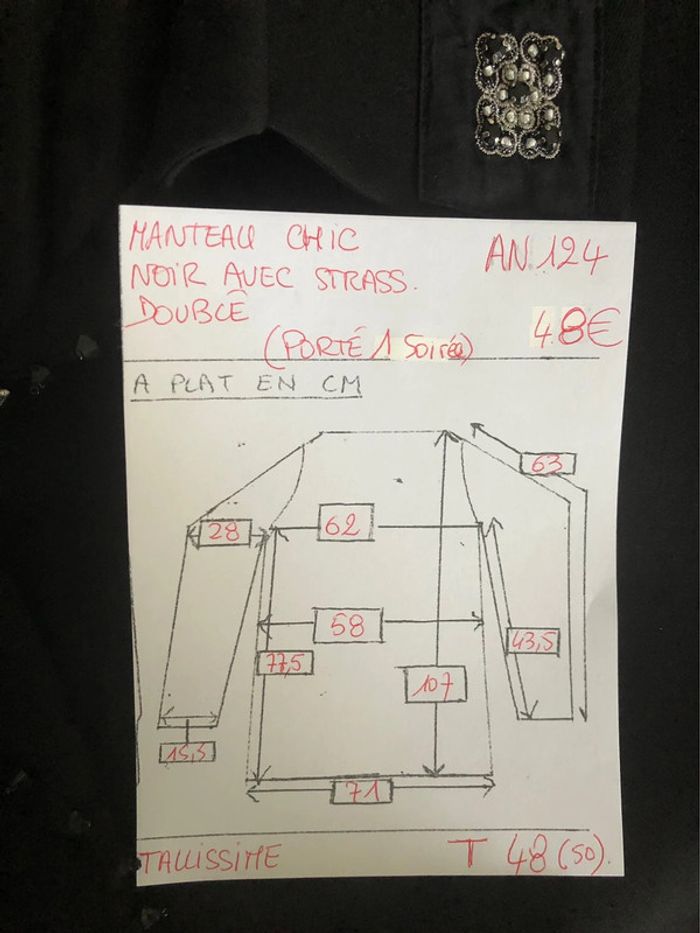 MANTEAU CHIC
AN 124
NOIR AVEC STRASS.
DOUBLÉ
48€
(PORTÉ 1 Soirée)
A PLAT EN CM
63
28
62
58
43,5
77,5
107
15,5
71
TAILLISSIME
T 48 (50).